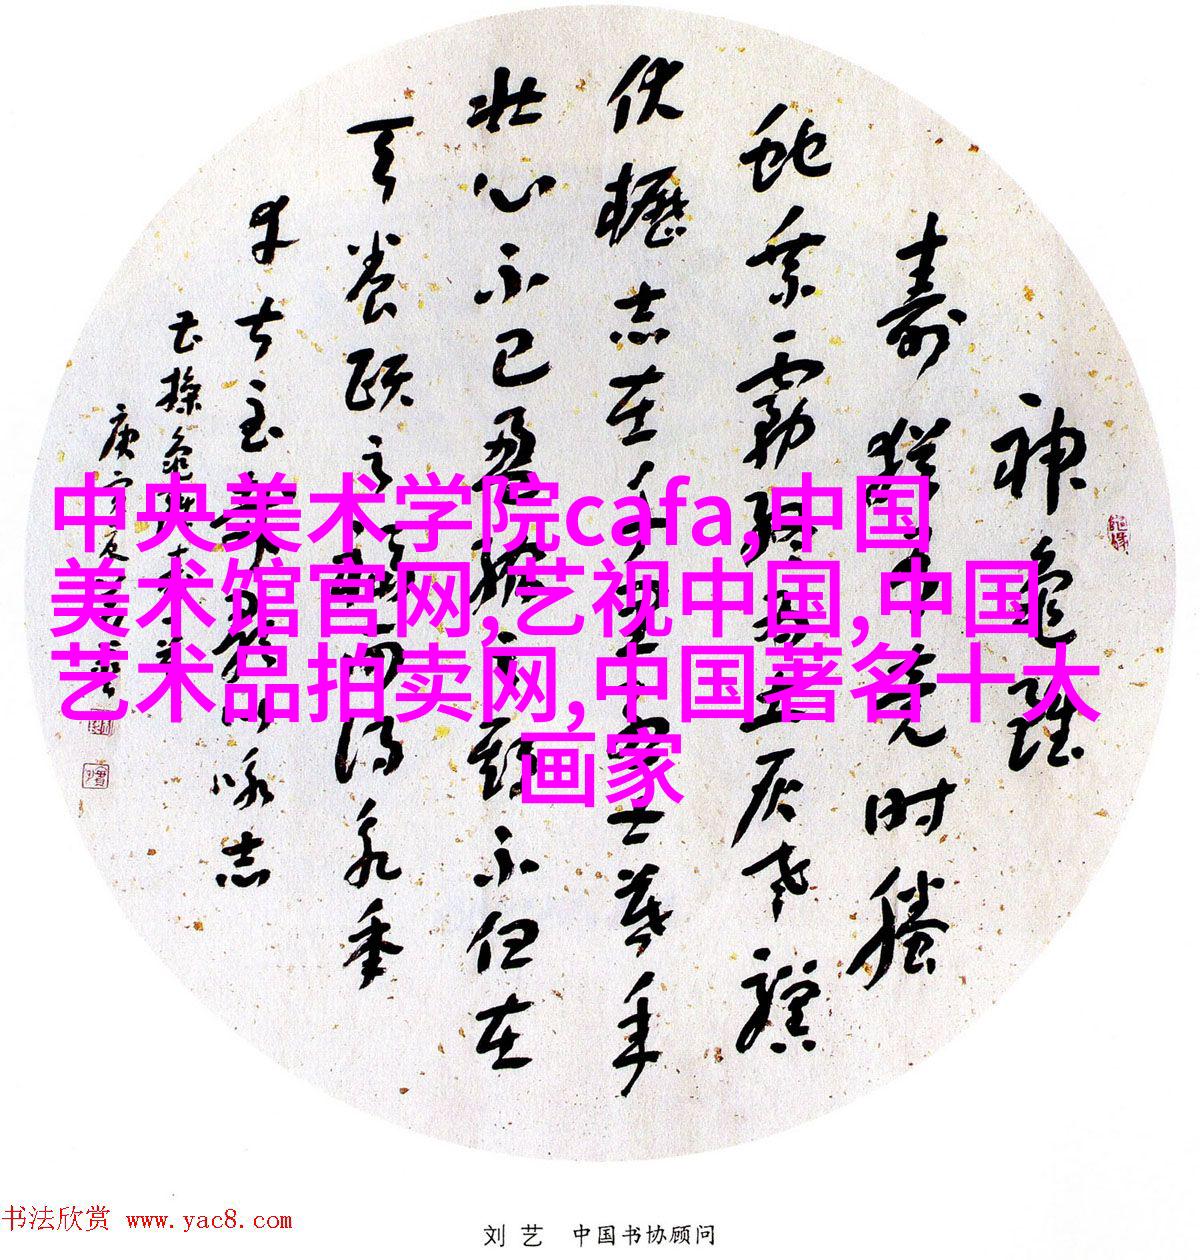 神龜雖
壽猶有竟时騰
蛇乘霧終為土灰老驥
伏櫪志在千里烈士暮年
壯心不已盈縮之期不但在
天養頤之福可得永年
幸甚至哉歌以咏志
曹操龜雖壽
庚寅夏
中央美术学院cafa,中国
美术馆官网,艺视中国,中国
艺术品拍卖网,中国著名十大
画家
书法欣赏 www.yac8.com
刘艺 中国书协顾问